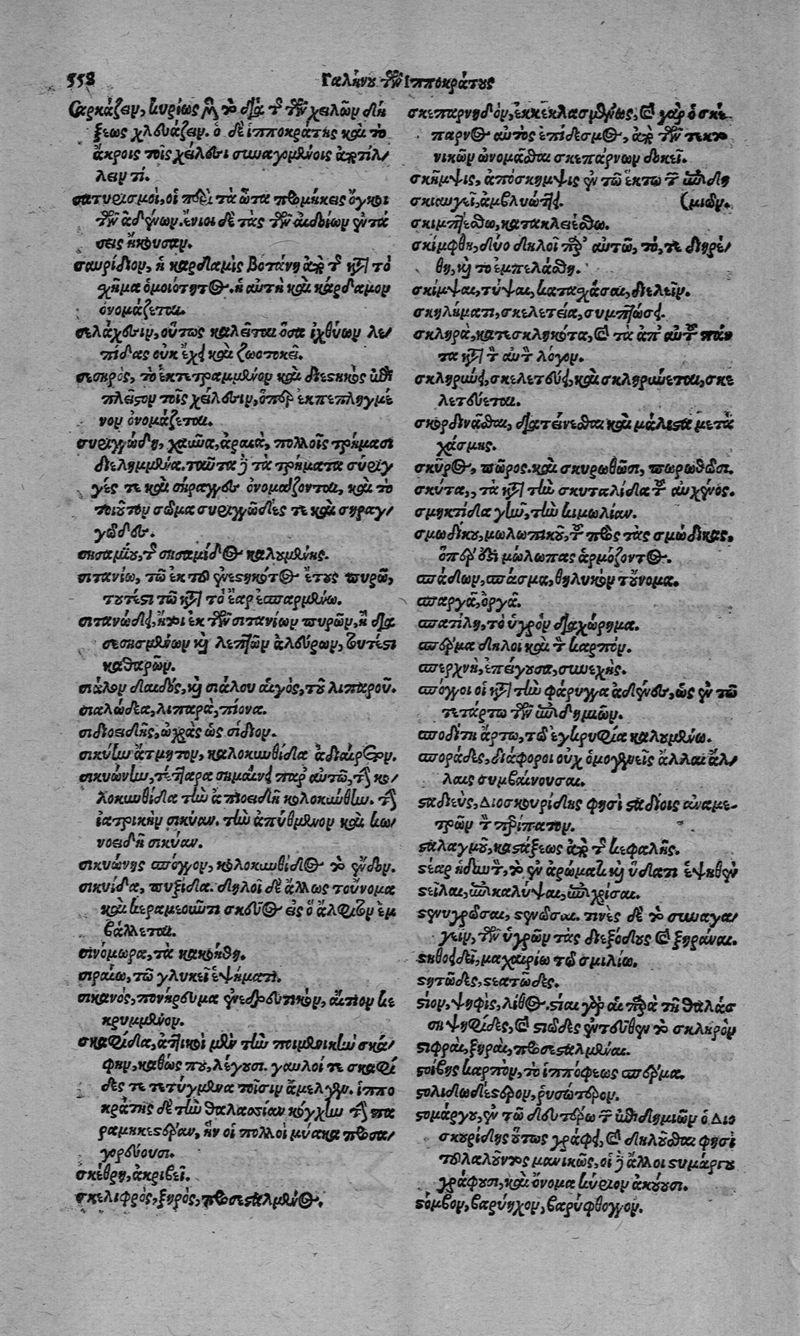 558
Γαλήνου τῶν Ἱπποκράτους
Σαρκάζειν, κυρίως μὲν τὸ διὰ τῆς τῶν χειλῶν διή
ξεως χλευάζειν. ὁ δὲ ἱπποκράτης καὶ τὸ
ἄκροις τοῖς χείλεσι συναγομένοις ἀποτίλ/
λειν τί.
σατυρισμοί, οἱ περὶ τὰ ὦτα προμήκεις ὄγκοι
τῶν ἀδένων. ἔνιοι δὲ τὰς τῶν αἰδοίων ἐντά
σεις ἤκουσαν.
σαυρίδιον, ἡ καρδαμὶς βοτάνη ἀπὸ τῆς κατὰ τὸ
χῆμα ὁμοιότητος. ἡ αὐτὴ καὶ κάρδαμον
ὀνομάζεται.
σελάχεσιν, οὕτως καλεῖται ὅσα ἰχθύων λε/
πίδας οὐκ ἔχει καὶ ζωοτοκεῖ.
σεσηρός, τὸ ἐκτετραμμένον καὶ διεστηκὸς ἐπὶ
πλεῖστον τοῖς χείλεσιν, ὅπερ ἐκπεπληγμέ
νον ὀνομάζεται.
συριγγώδη, χαῦνα, ἀραιὰ, πολλοῖς τρήμασι
διειλημμένα. ταῦτα γὰρ τὰ τρήματα σύριγ
γές τε καὶ σήραγγες ὀνομάζονται, καὶ τὸ
τοιοῦτον σῶμα συριγγῶδές τε καὶ σηραγ/
γῶδες.
σησαμίου, τῆς σησαμίδος καλουμένης.
σιτανίῳ, τῷ ἐκ τοῦ ἐνεστηκότος ἔτους πυρῷ,
τουτέστι τῷ κατὰ τὸ ἔαρ ἐσπαρμένῳ.
σιτανώδει, ἤτοι ἐκ τῶν σιτανίων πυρῶν, ἢ δια
σεσησμένων καὶ λεπτῶν ἀλεύρων, τουτέστι
καθαρῶν.
σιάλου δαιδός, καὶ σιάλου αἰγός, τοῦ λιπαροῦ.
σιαλώδεα, λιπαρὰ, πίονα.
σιδιοειδής, ὠχρὰς ὡς σίδιον.
σικύην ἄτμητον, καλοκυνθίδα ἀδιαίρετον.
σικυώνην, τέτταρα σημαίνει παρ' αὐτῷ, τὴν κο/
λοκυνθίδα τὴν ἀπιοειδῆ κολοκύνθην. τὴν
ἰατρικὴν σικύαν. τὴν ἀπύθμενον καὶ κω/
νοειδῆ σικύαν.
σικυώνης σπόγγον, κολοκυνθίδος τὸ ἔνδον.
σικυίδα, πυξίδα. δηλοῖ δὲ ἄλλως τοὔνομα
καὶ κεραμεοῦν τι σκεῦος εἰς ὃ ἄλφιτον ἐμ
βάλλεται.
σινόμωρα, τὰ κακοήθη.
σιραίῳ, τῷ γλυκεῖ ἑψήματι.
σικανός, πονήρευμα ἐνεδρευτικόν, αἴτιον κε
κρυμμένον.
σκαφίδα, ἀττικοὶ μὲν τὴν ποιμενικὴν σκά/
φην, καθώς που λέγουσι. γαυλοί τε σκαφί
δες τε τετύγμενα τοῖσιν ἄμελγεν. ἱππο
κράτης δὲ τὴν θαλασσίαν κόγχην τὴν πα
ραμηκεστέραν, ἣν οἱ πολλοὶ μύακα προσα/
γορεύουσι.
σκεθρῇ, ἀκριβεῖ.
σκελιφρός, ξηρός, προσεσταλμένος.
σκεπαρνηδόν, ἐκκεκλασμένως, καὶ γὰρ ὁ σκέ
παρνος αὐτὸς ἐπίδεσμος, ἀπὸ τῶν τεκτο
νικῶν ὠνομᾶσθαι σκεπάρνων δοκεῖ.
σκῆμψις, ἀπόσκημψις ἐν τῷ ἕκτῳ τῶν ἐπιδη
σκιαυγεῖ, ἀμβλυώττει. (μιῶν.
σκιμπτέσθω, κατακλειέσθω.
σκίμφθη, δύο δηλοῖ παρ' αὐτῷ, τό, τε διηρέ/
θη, καὶ τὸ ἐμπελάσθη.
σκίμψαι, τύψαι, καταχάσαι, διελεῖν.
σκηλήματι, σκελετεία, συμπτώσει.
σκληρὰ, κατεσκληκότα, καὶ τὰ ἀπ' αὐτῶν πάν
τα κατὰ τὸν αὐτὸν λόγον.
σκληρύνει, σκελετεύει, καὶ σκληρύνεται, σκε
λετεύεται.
σκορδινᾶσθαι, διατείνεσθαι καὶ μάλιστα μετὰ
χάσμης.
σκῦρος, πῶρος. καὶ σκυρωθῶσι, πωρωθῶσι.
σκύτα,, τὰ κατὰ τὴν σκυταλίδα τοῦ αὐχένος.
σμηκτίδα γῆν, τὴν κιμωλίαν.
σμωδίκου, μωλωπικοῦ, τοῦ πρὸς τὰς σμώδικας.
ὅπερ ἐστὶ μώλωπας ἁρμόζοντος.
σπάδων, σπάσμα, θηλυκὸν τοὔνομα.
σπαργᾷ, ὀργᾷ.
σπατίλη, τὸ ὑγρὸν διαχώρημα.
σπέρμα δηλοῖ καὶ τὸν καρπόν.
σπερχνή, ἐπείγουσα, συνεχής.
σπόγγοι οἱ κατὰ τὴν φάρυγγα ἀδένες, ὡς ἐν τῷ
τετάρτῳ τῶν ἐπιδημιῶν.
σποδίτῃ ἄρτῳ, τῷ ἐγκρυφίᾳ καλουμένῳ.
σποράδες, διάφοροι οὐχ ὁμογενεῖς ἄλλαι ἄλ/
λαις συμβαίνουσαι.
σταδεύς, Διοσκουρίδης φησὶ σταδίοις ἀναμε-
τρῶν τὸν περίπατον.
σταλαγμοῦ, καστάξεως ἀπὸ τῆς κεφαλῆς.
στέαρ ἡδυντὸν, τὸ ἐν ἀρώμασι καὶ ὕδατι ἑψηθὲν
στεῖλαι, ἐπικαλύψαι, ἐπιχρίσαι.
στενυγρῶσαι, στενῶσαι. τινὲς δὲ τὸ συναγα/
γεῖν, τῶν ὑγρῶν τὰς διεξόδους καὶ ξηρᾶναι.
στηθοειδεῖ, μαχαιρίῳ τῷ σμιλίῳ.
στητῶδες, στεατῶδες.
στῖον, ψηφὶς, λίθος. στῖαι γὰρ αἱ παρὰ τῇ θαλάσ
σῃ ψηφίδες, καὶ στιῶδες ἐντεῦθεν τὸ σκληρὸν
στιφραὶ, ξηραὶ, προσεσταλμέναι.
στοίβης καρπὸν, τὸ ἱππόφεως σπέρμα.
στολιδωδέστερον, ῥυσώτερον.
στομάργου, ἐν τῷ δευτέρῳ τῶν ἐπιδημιῶν ὁ Διο
σκορίδης οὕτως γράφει, καὶ δηλοῦσθαι φησὶ
τοῦ λαλοῦντος μανικῶς, οἱ γὰρ ἄλλοι στυμάργου
γράφουσι, καὶ ὄνομα κύριον ἀκούουσι.
στόμβον, βαρύηχον, βαρύφθογγον.